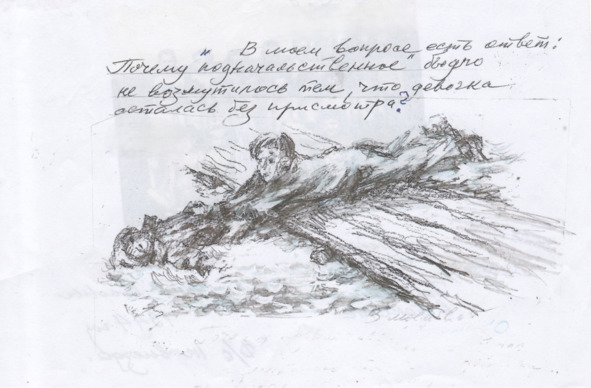 В моем вопросе есть ответ:
Почему "подначальственное" быдло
не возмутилось тем, что девочка
осталась без присмотра?